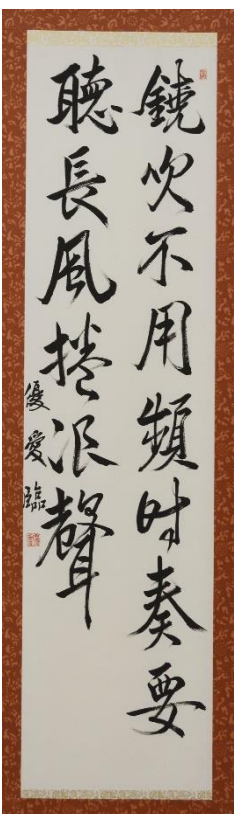 鐃吹不用頻时奏要
聽長風捲浪聲
優愛臨